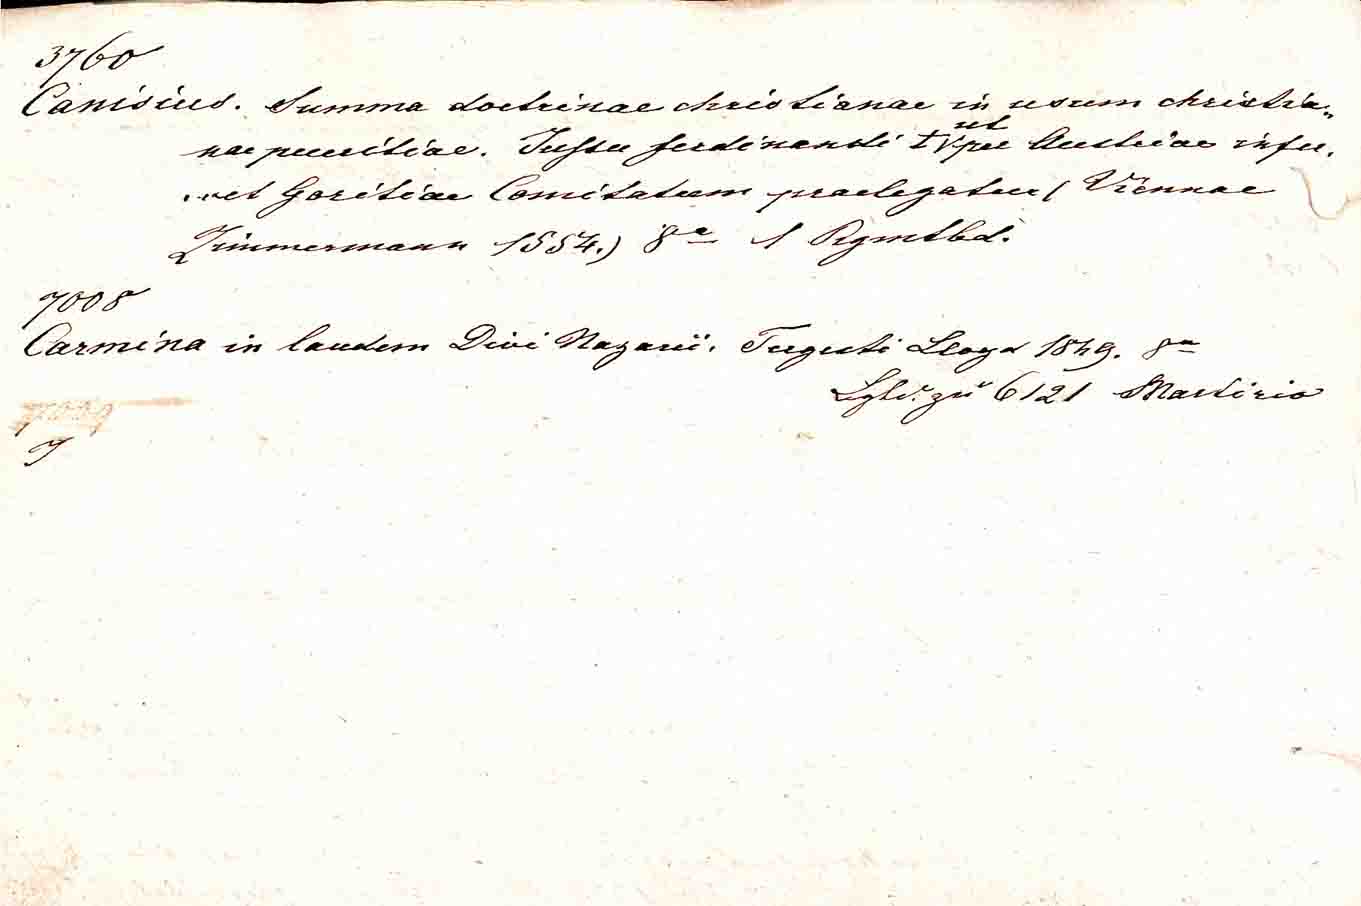 3760
Canisius. Summa doctrinae christianae in usum christia„
nae pueritiae. Jussu ferdinandi I ut per Austriae infer.
et Goritiae Comitatum praelegatur / Viennae
Zimmermann 1554.) 8° 1 Pgmtbd.
7008
Carmina in laudem Divi Nazarii. Tergesti Lloyd 1849. 8°
zu 6121 Martirio